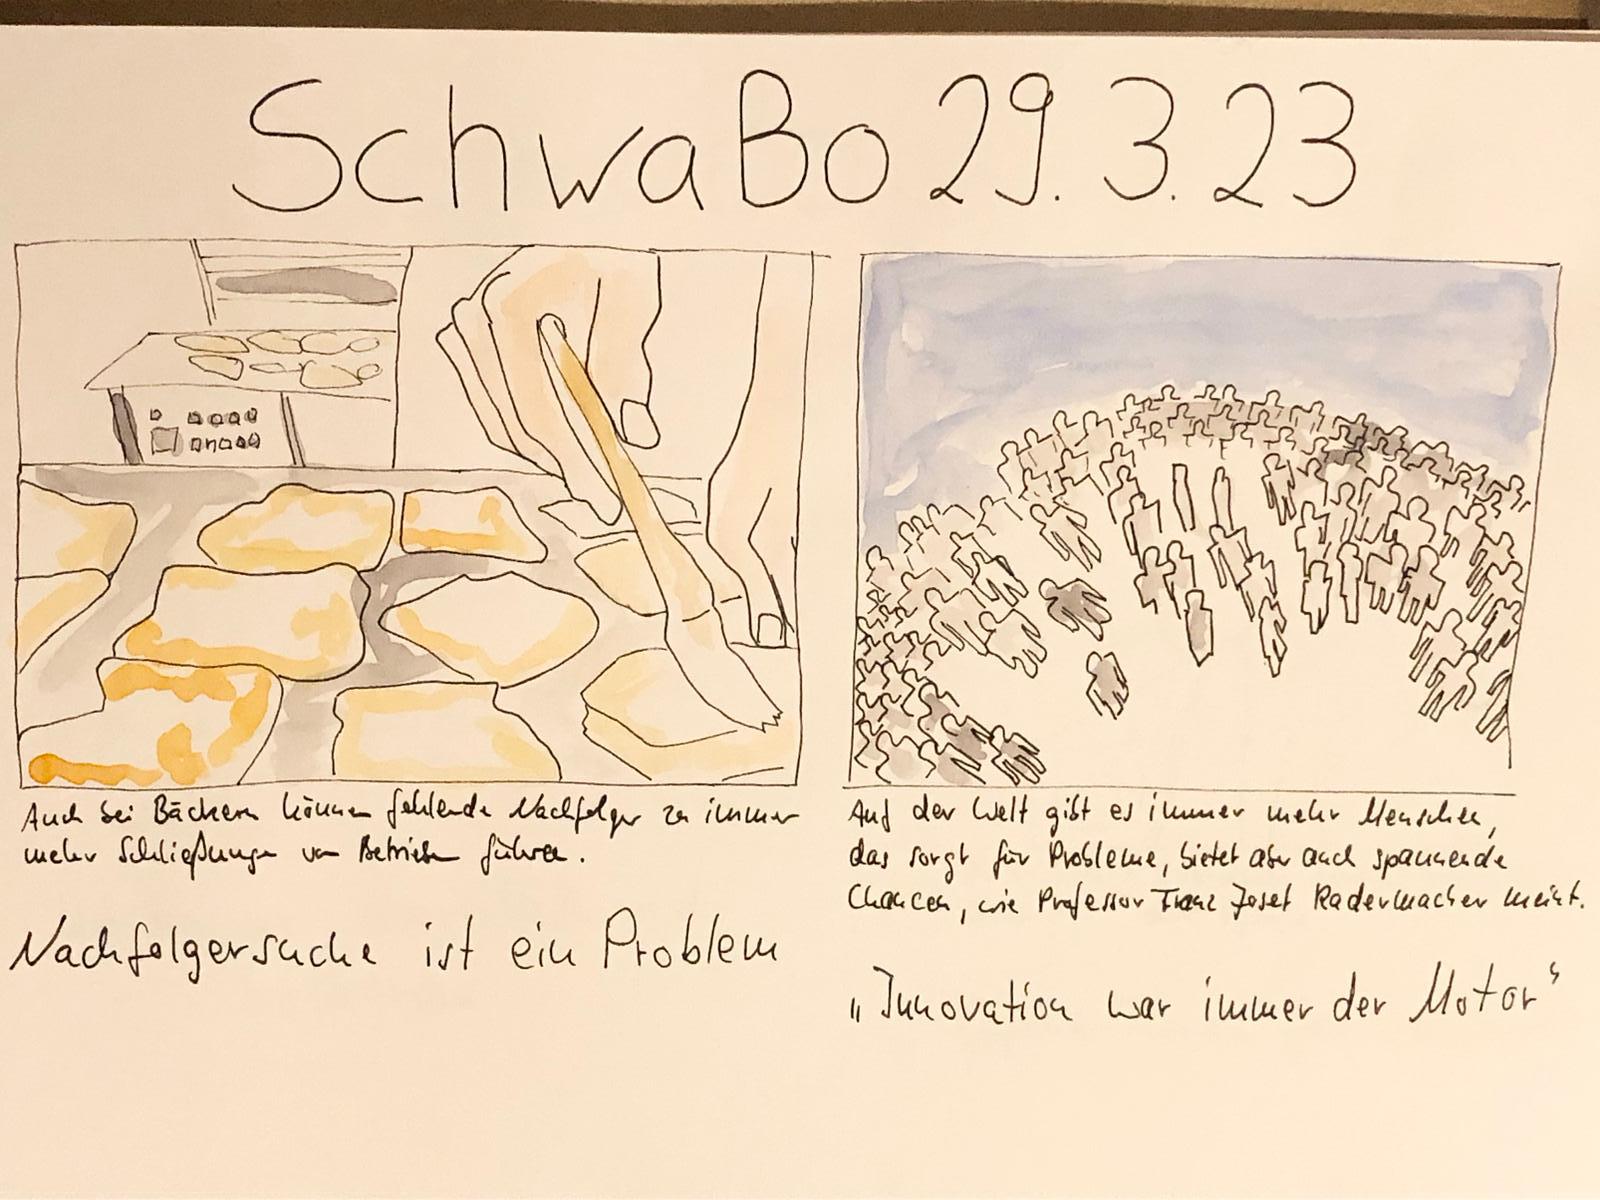 SchwaBo 29.3.23
Auch bei Bäckern können fehlende Nachfolger zu immer
mehr Schließungen von Betrieben führen.
Nachfolgersuche ist ein Problem
Auf der Welt gibt es immer mehr Menschen,
das sorgt für Probleme, bietet aber auch spannende
Chancen, wie Professor Franz Josef Radermacher meint.
„Innovation war immer der Motor“